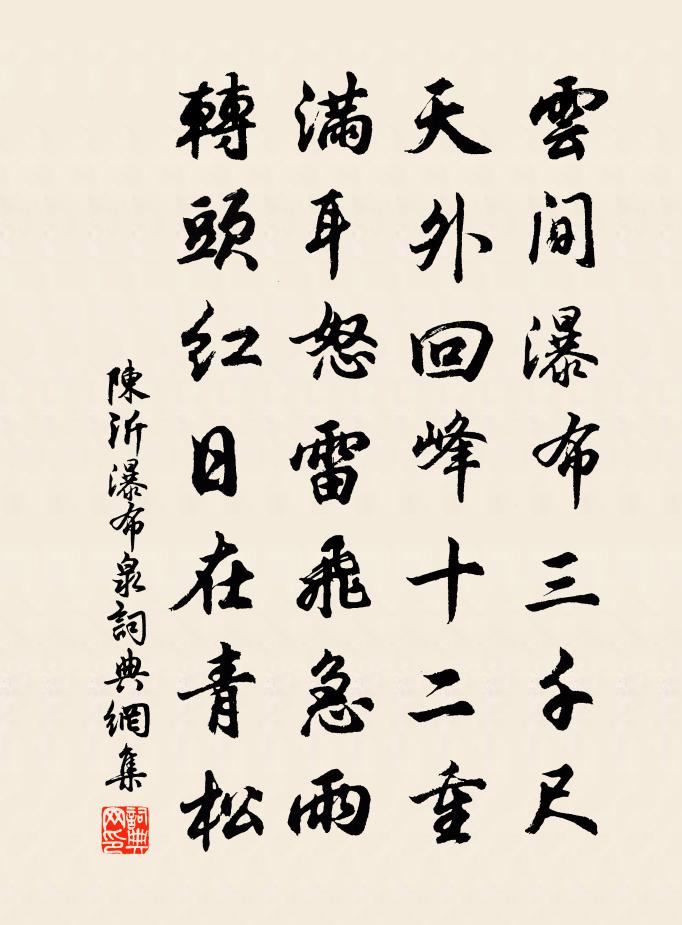 雲間瀑布三千尺
天外回峰十二重
滿耳怒雷飛急雨
轉頭紅日在青松
陳沂瀑布泉詞典網集
詞典网印